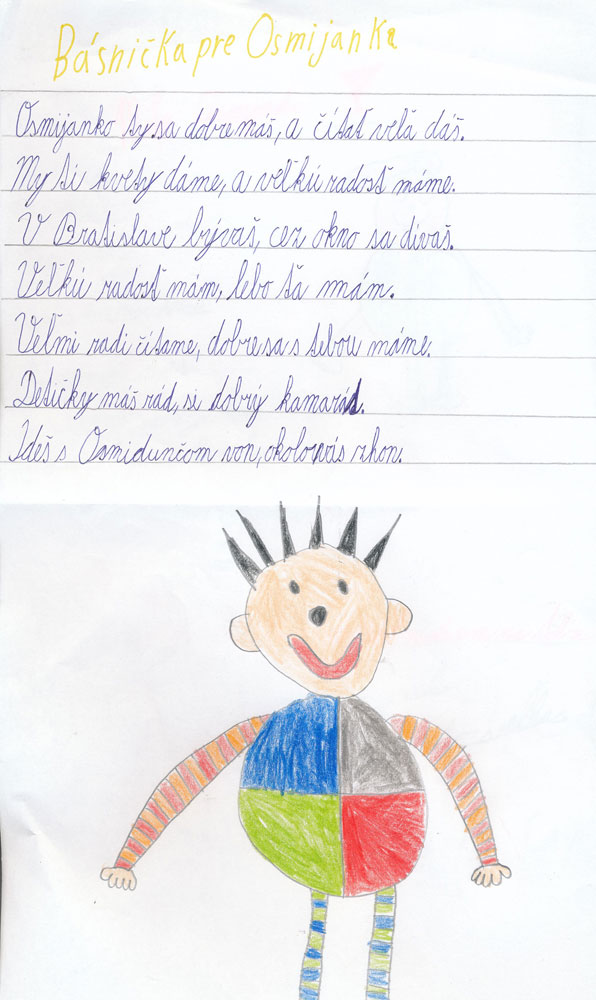 Básnička pre Osmijanka
Osmijanko ty sa dobre máš, a čítať veľa dáš.
My ti kvety dáme, a veľkú radosť máme.
V Bratislave bývaš, cez okno sa dívaš.
Veľkú radosť mám, lebo ťa mám.
Veľmi radi čítame, dobre sa s tebou máme.
Detičky máš rád, si dobrý kamarád.
Ideš s Osmidunčom von, okolo vás zhon.